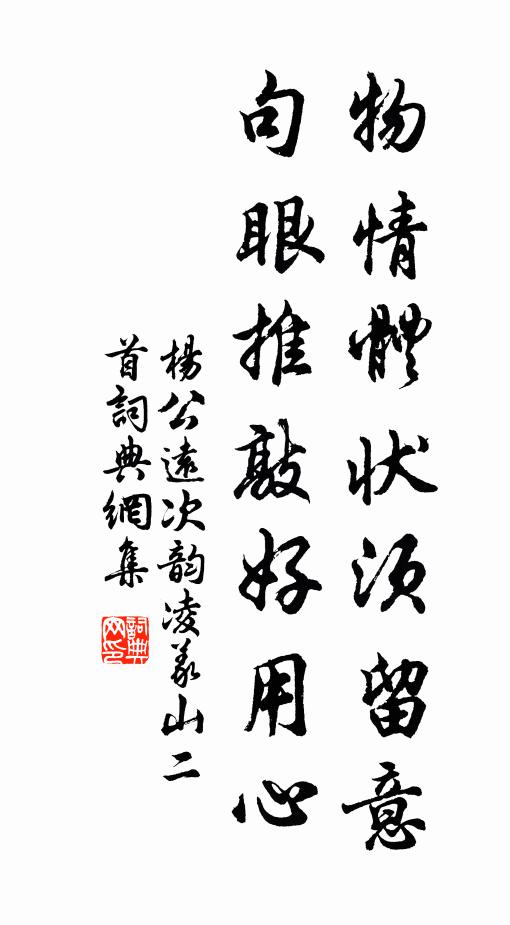 物情體状須留意
句眼推敲好用心
楊公遠次韵凌羲山二
首詞典網集
詞典網印